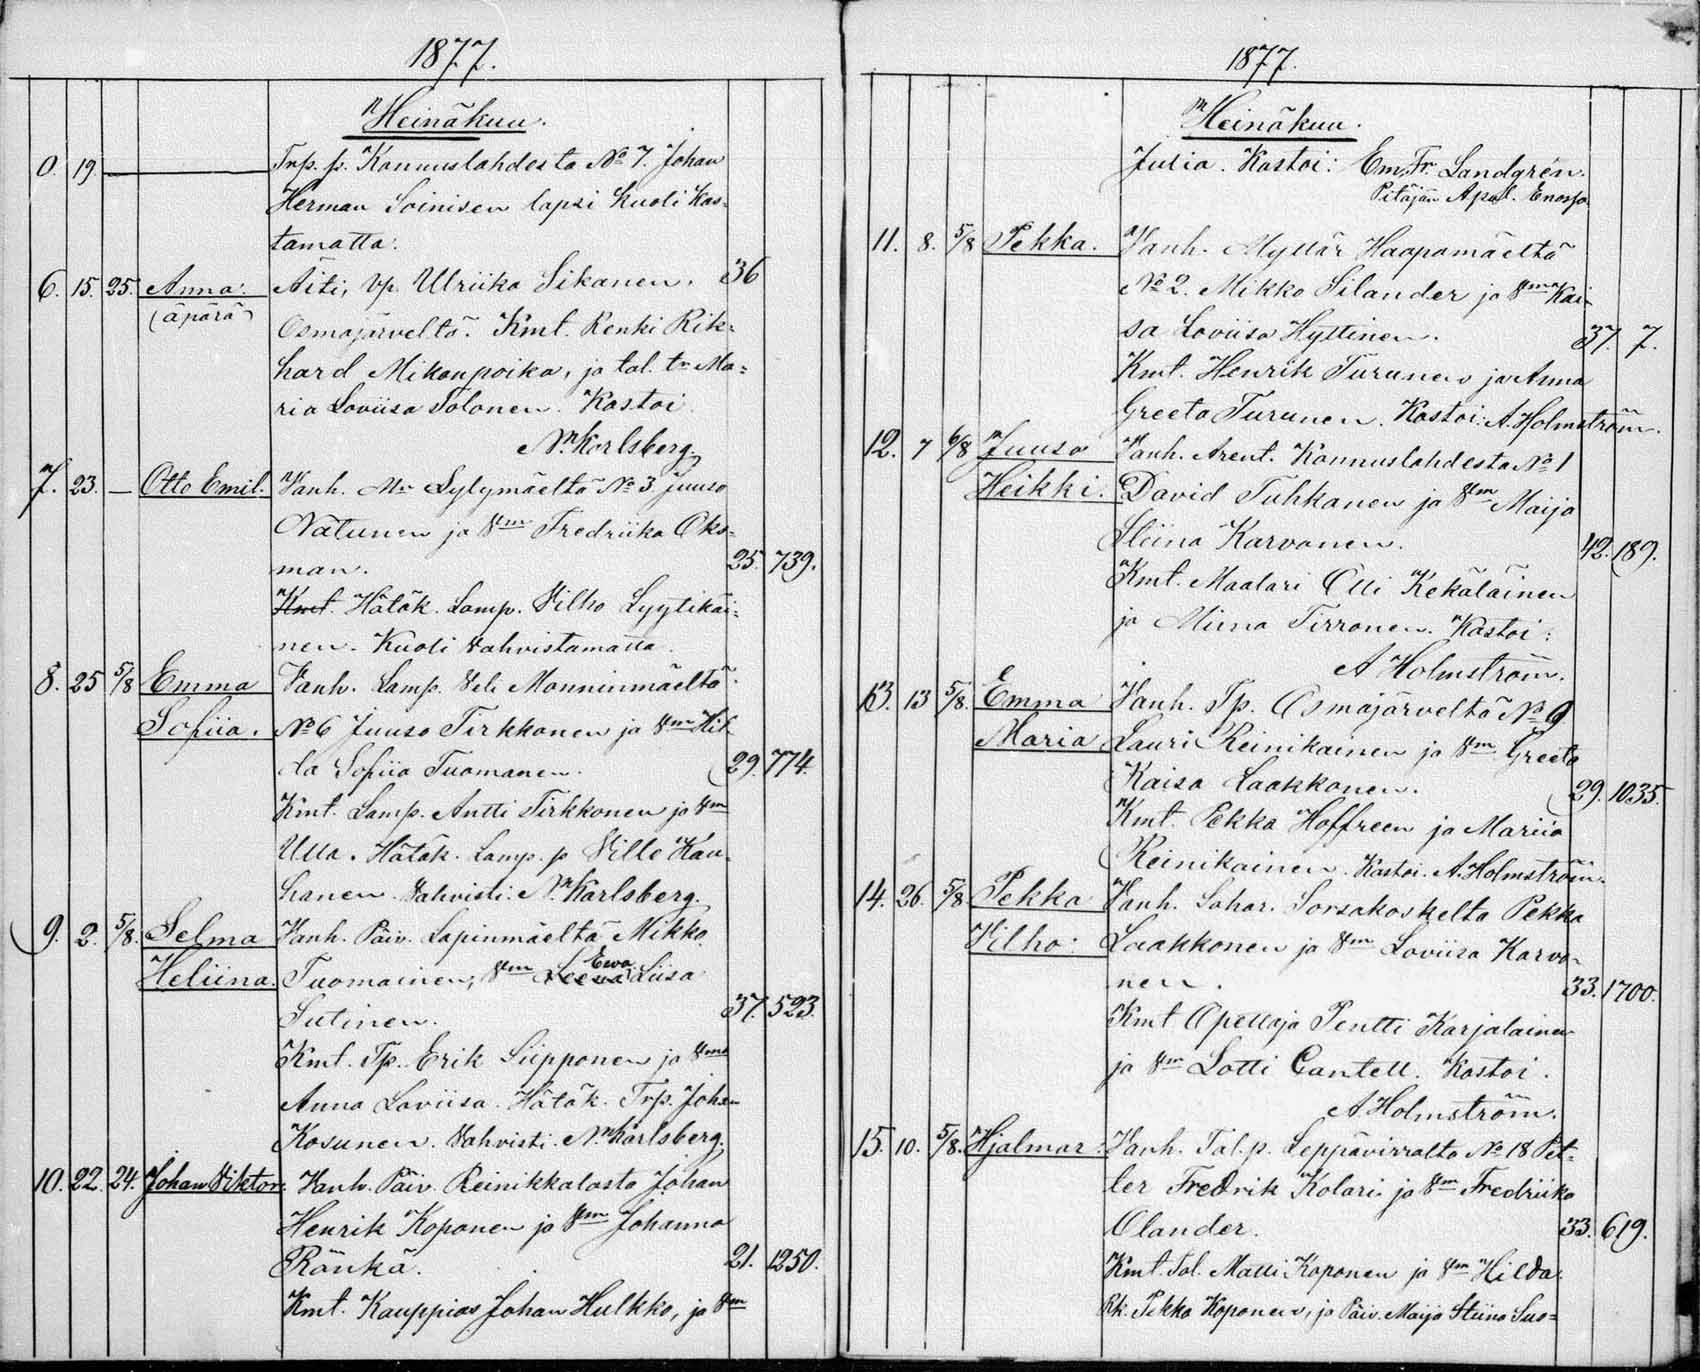 1877.
Heinäkuu.
0. 19. Trp. p. Kannuslahdesta No 7. Johan
Herman Soinisen lapsi kuoli kas-
tamatta.
6. 15. 25. Anna. Äiti, vp. Ulriika Sikanen. 36
(äpärä) Osmajärveltä. Kmt. Renki Rik-
hard Mikonpoika, ja tal. tr Ma-
ria Loviisa Tolonen. Kastoi
N. Karlsberg.
7. 23. — Otto Emil. Vanh. Mr Lylymäeltä No 3 Juuso
Natunen ja Vm Fredriika Oks-
man. 25. 739.
Kmt. Hätäk. Lamp. Vilho Lyytikäi-
nen. Kuoli vahvistamatta.
8. 25 5/8 Emma Vanh. Lamp. Veli Monninmäeltä
Sofiia. No 6 Juuso Tirkkonen ja Vm Hil-
da Sofiia Tuomanen. 29. 774.
Kmt. Lamp. Antti Tirkkonen ja Vm
Ulla. Hätäk. Lamp. p Ville Kau-
hanen. Vahvisti. N. Karlsberg.
9. 2. 5/8. Selma Vanh. Päiv. Lapinmäeltä Mikko
Heliina. Tuomainen, Vm Leena Ewa Liisa
Sutinen. 37. 523.
Kmt. Tp. Erik Siipponen ja Vm
Anna Loviisa. Hätäk. Trp. Johan
Kosunen. Vahvisti. N. Karlsberg.
10. 22. 24. Johan Viktor. Vanh. Päiv. Reinikkalasta Johan
Henrik Koponen ja Vm Johanna
Ränkä. 21. 1250.
Kmt. Kauppias Johan Hulkko, ja Vm
1877.
Heinäkuu.
Julia. Kastoi: Em. Fr. Landgrén.
Pitäjän Apul. Enossa.
11. 8. 5/8 Pekka. Vanh. Myllär Haapamäeltä
No 2. Mikko Silander ja Vm Kai-
sa Loviisa Hyttinen. 37. 7.
Kmt. Henrik Turunen ja Anna
Greeta Turunen. Kastoi: A. Holmström.
12. 7 6/8 Juuso Vanh. Arent. Kannuslahdesta No 1
Heikki. David Tuhkanen ja Vm Maija
Stiina Karvonen. 42. 189.
Kmt. Maalari Olli Kekäläinen
ja Miina Tirronen. Kastoi:
A Holmström.
13. 13 5/8. Emma Vanh. Tp. Osmajärveltä No 9
Maria Lauri Reinikainen ja Vm Greeta
Kaisa Laakkonen. 29. 1035.
Kmt. Pekka Hoffreen ja Mariia
Reinikainen. Kastoi. A. Holmström.
14. 26. 5/8 Pekka Vanh. Sahar. Sorsakoskelta Pekka
Vilho: Laakkonen ja Vm Loviisa Karvo-
nen. 33. 1700.
Kmt Opettaja Pentti Karjalainen
ja Vm Lotti Cantell. Kastoi.
A. Holmström.
15. 10. 5/8. Hjalmar: Vanh. Tal. p. Leppävirralta No 18 Pet-
ter Fredrik Kolari ja Vm Fredriika
Olander. 33. 619.
Kmt. Tal. Matti Koponen ja Vm Hilda.
Rk. Pekka Koponen, ja Päiv. Maija Stiina Suo-